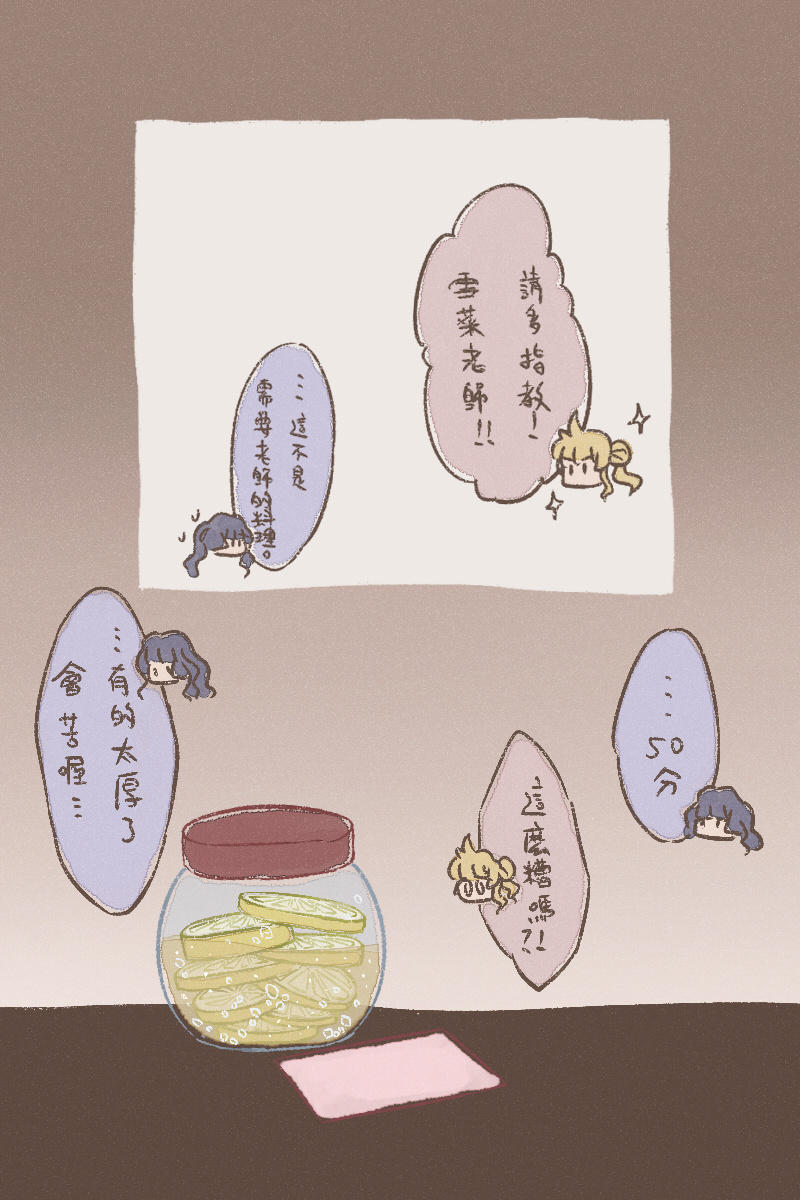 請多指教！
雪菜老師！！
…這不是
需要老師的料理。
…50分
這麼糟嗎?!
…有的太厚了
會苦喔…